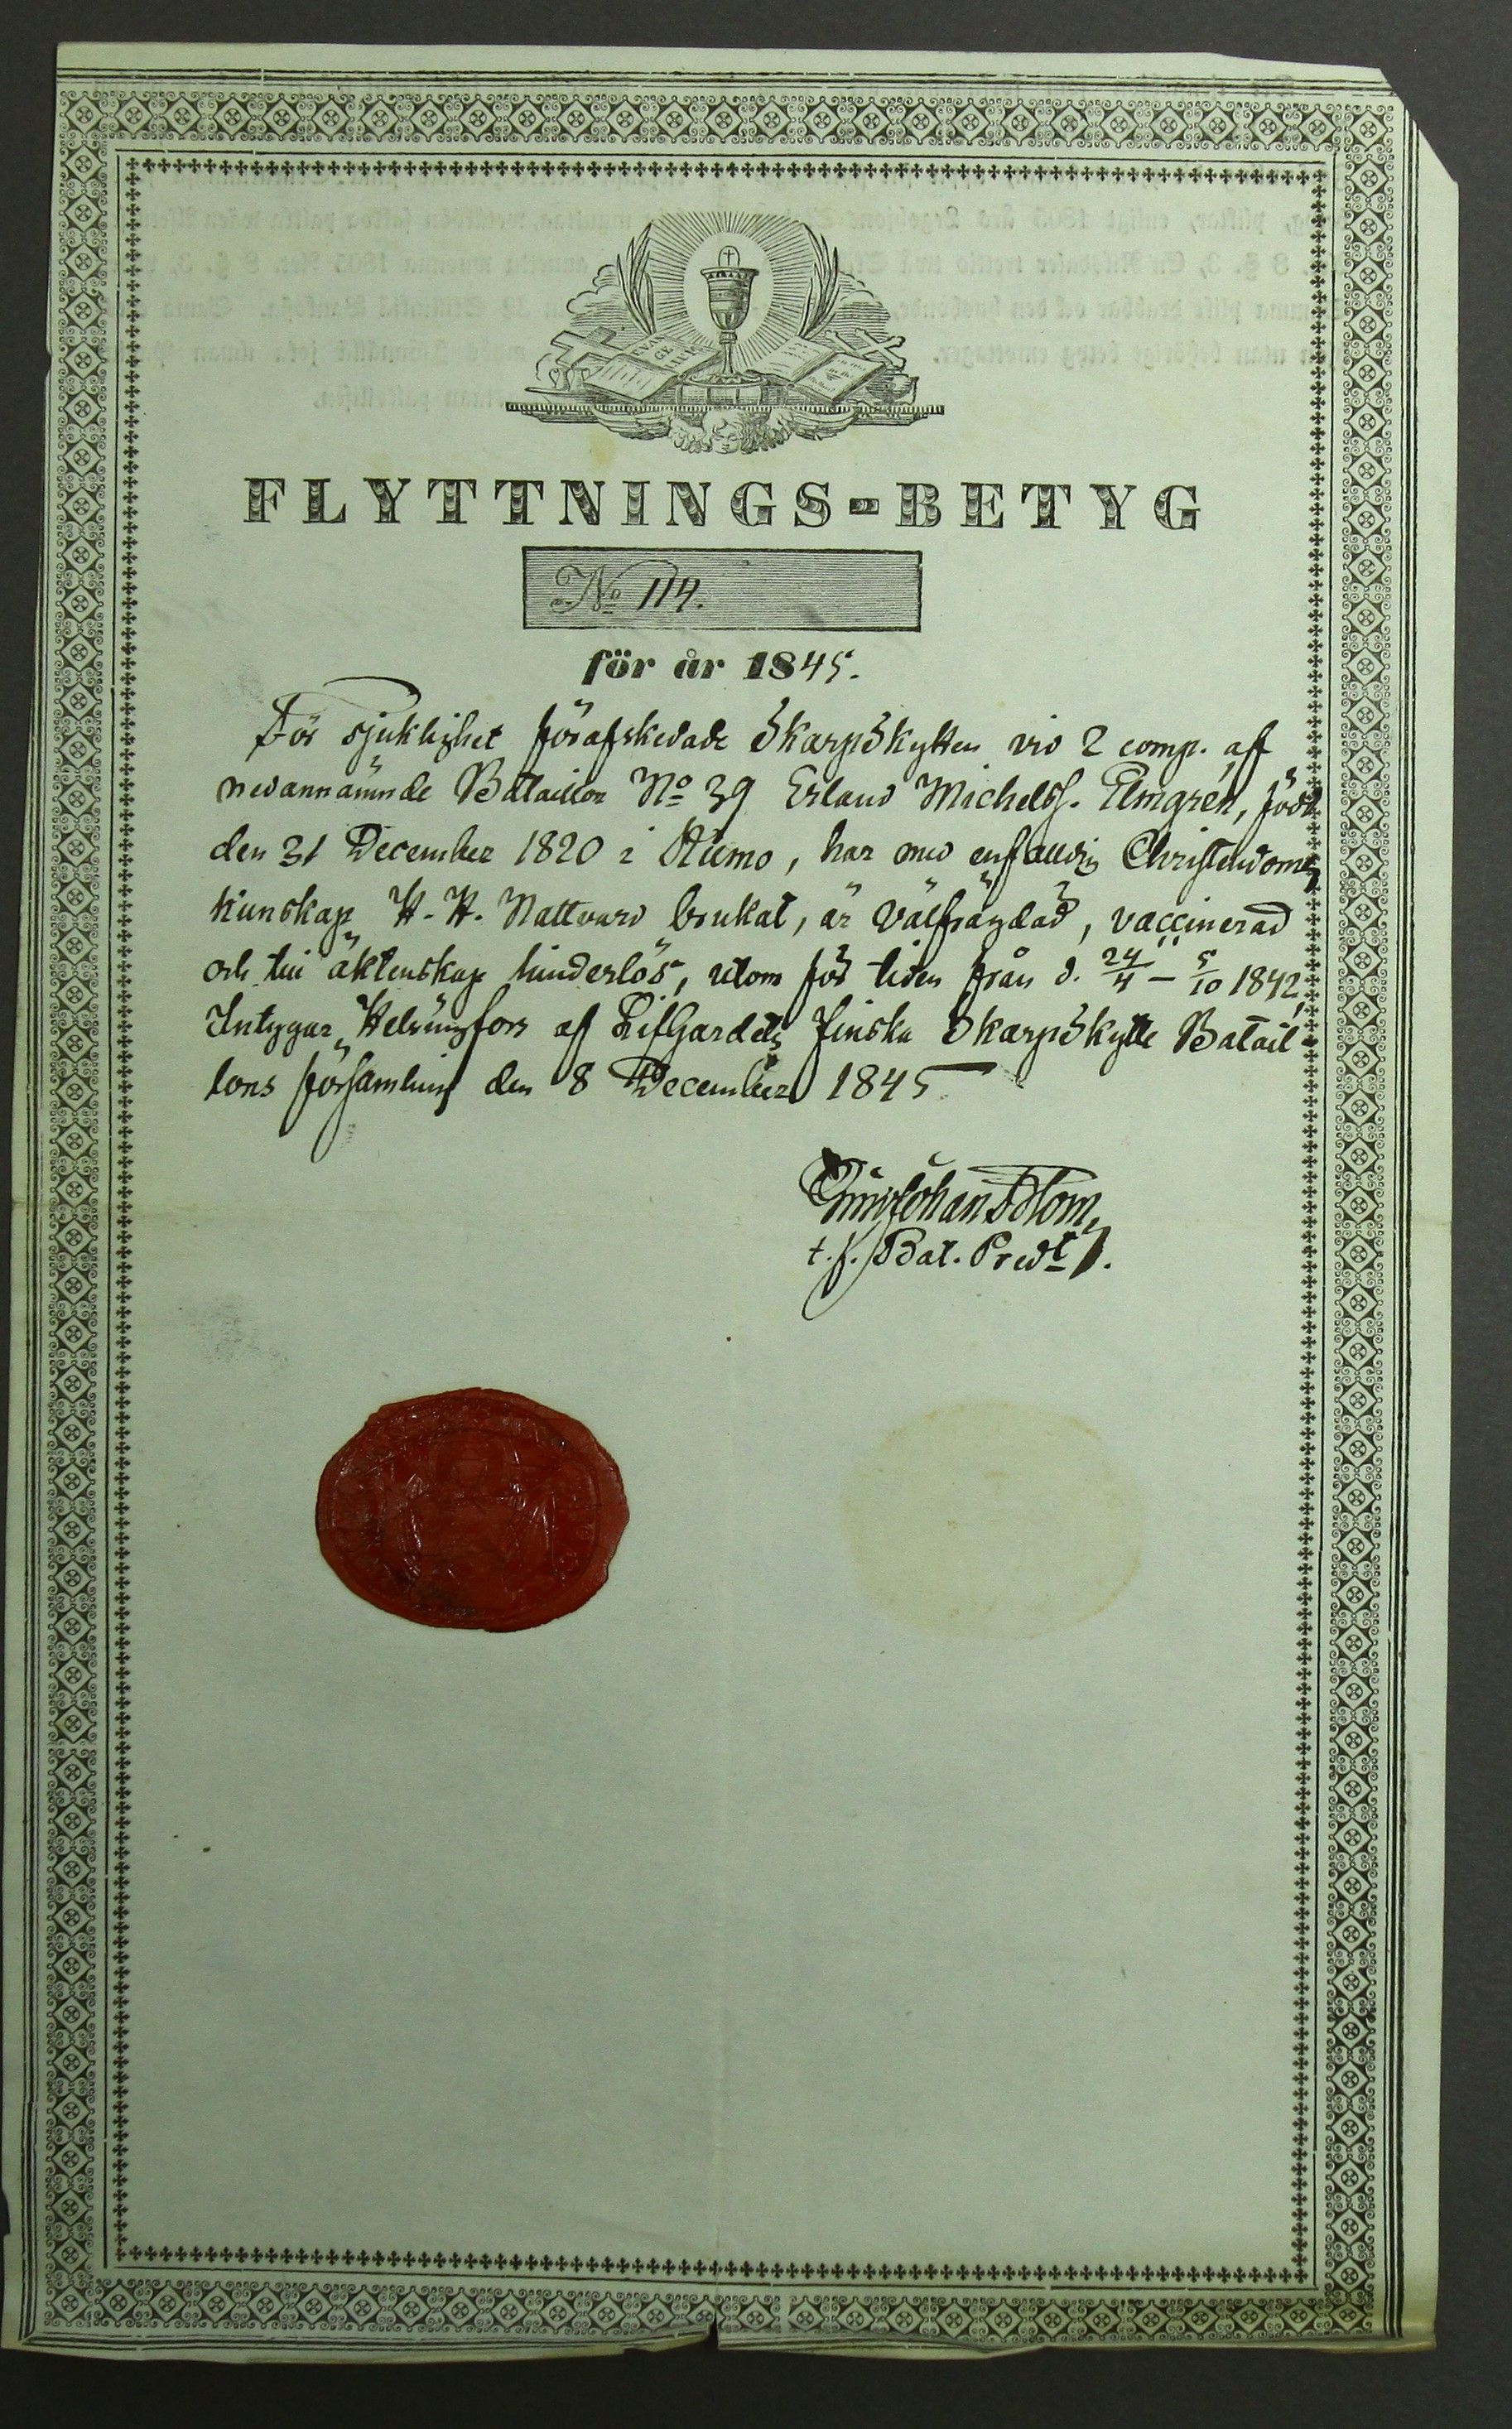 FLYTTNINGS-BETYG
No 114.
för år 1845.
För sjuklighet förafskedade SkarpSkytten vid 2 comp. af
nedannämnde Bataillon No 39 Erland Michelss. Elmgrén, född
den 31 December 1820 i, har med enfaldig Christendoms
kunskap H. H. Nattvard brukat, är välfrägdad, vaccinerad
och till äktenskap hinderlös, utom för tiden från d. 24/4 - 5/10 1842,
Intygar, Helsingfors af LifGardets finska SkarpSkytte Batail
lons församling den 8 December 1845
Johan
t. f. Bat. Predt.